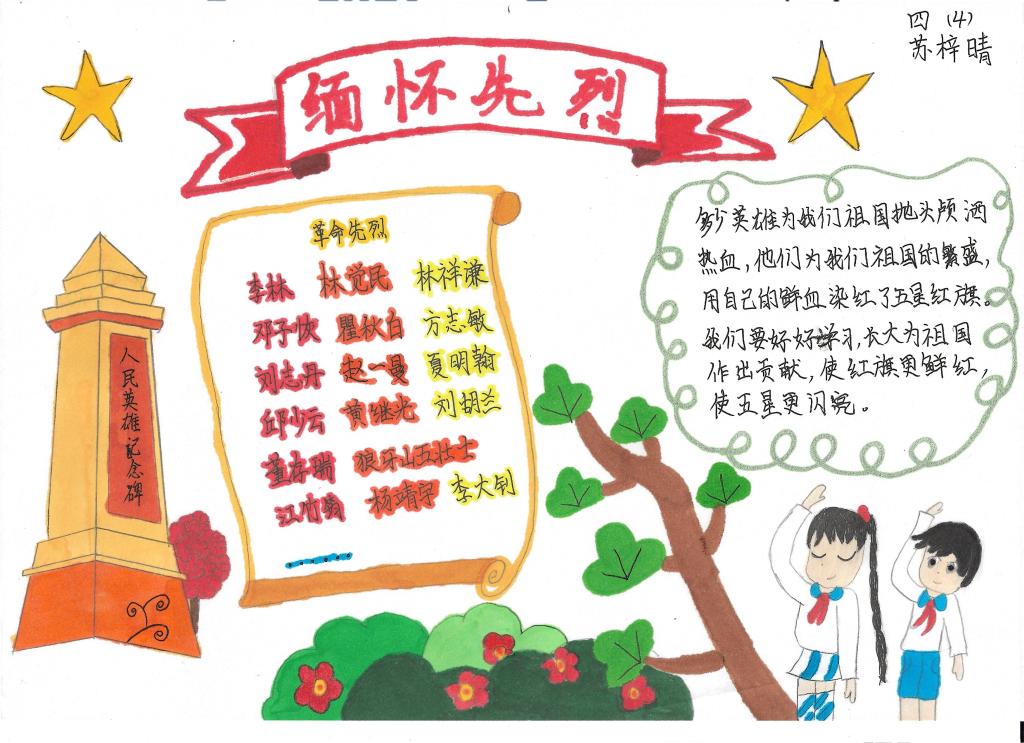 四 (4)
苏梓晴
缅怀先烈
人民英雄记念碑
革命先烈
李林 林觉民 林祥谦
邓子恢 瞿秋白 方志敏
刘志丹 赵一曼 夏明翰
邱少云 黄继光 刘胡兰
董存瑞 狼牙山五壮士
江竹筠 杨靖宇 李大钊
......
多少英雄为我们祖国抛头颅洒
热血,他们为我们祖国的繁盛,
用自己的鲜血染红了五星红旗。
我们要好好学习,长大为祖国
作出贡献,使红旗更鲜红,
使五星更闪亮。